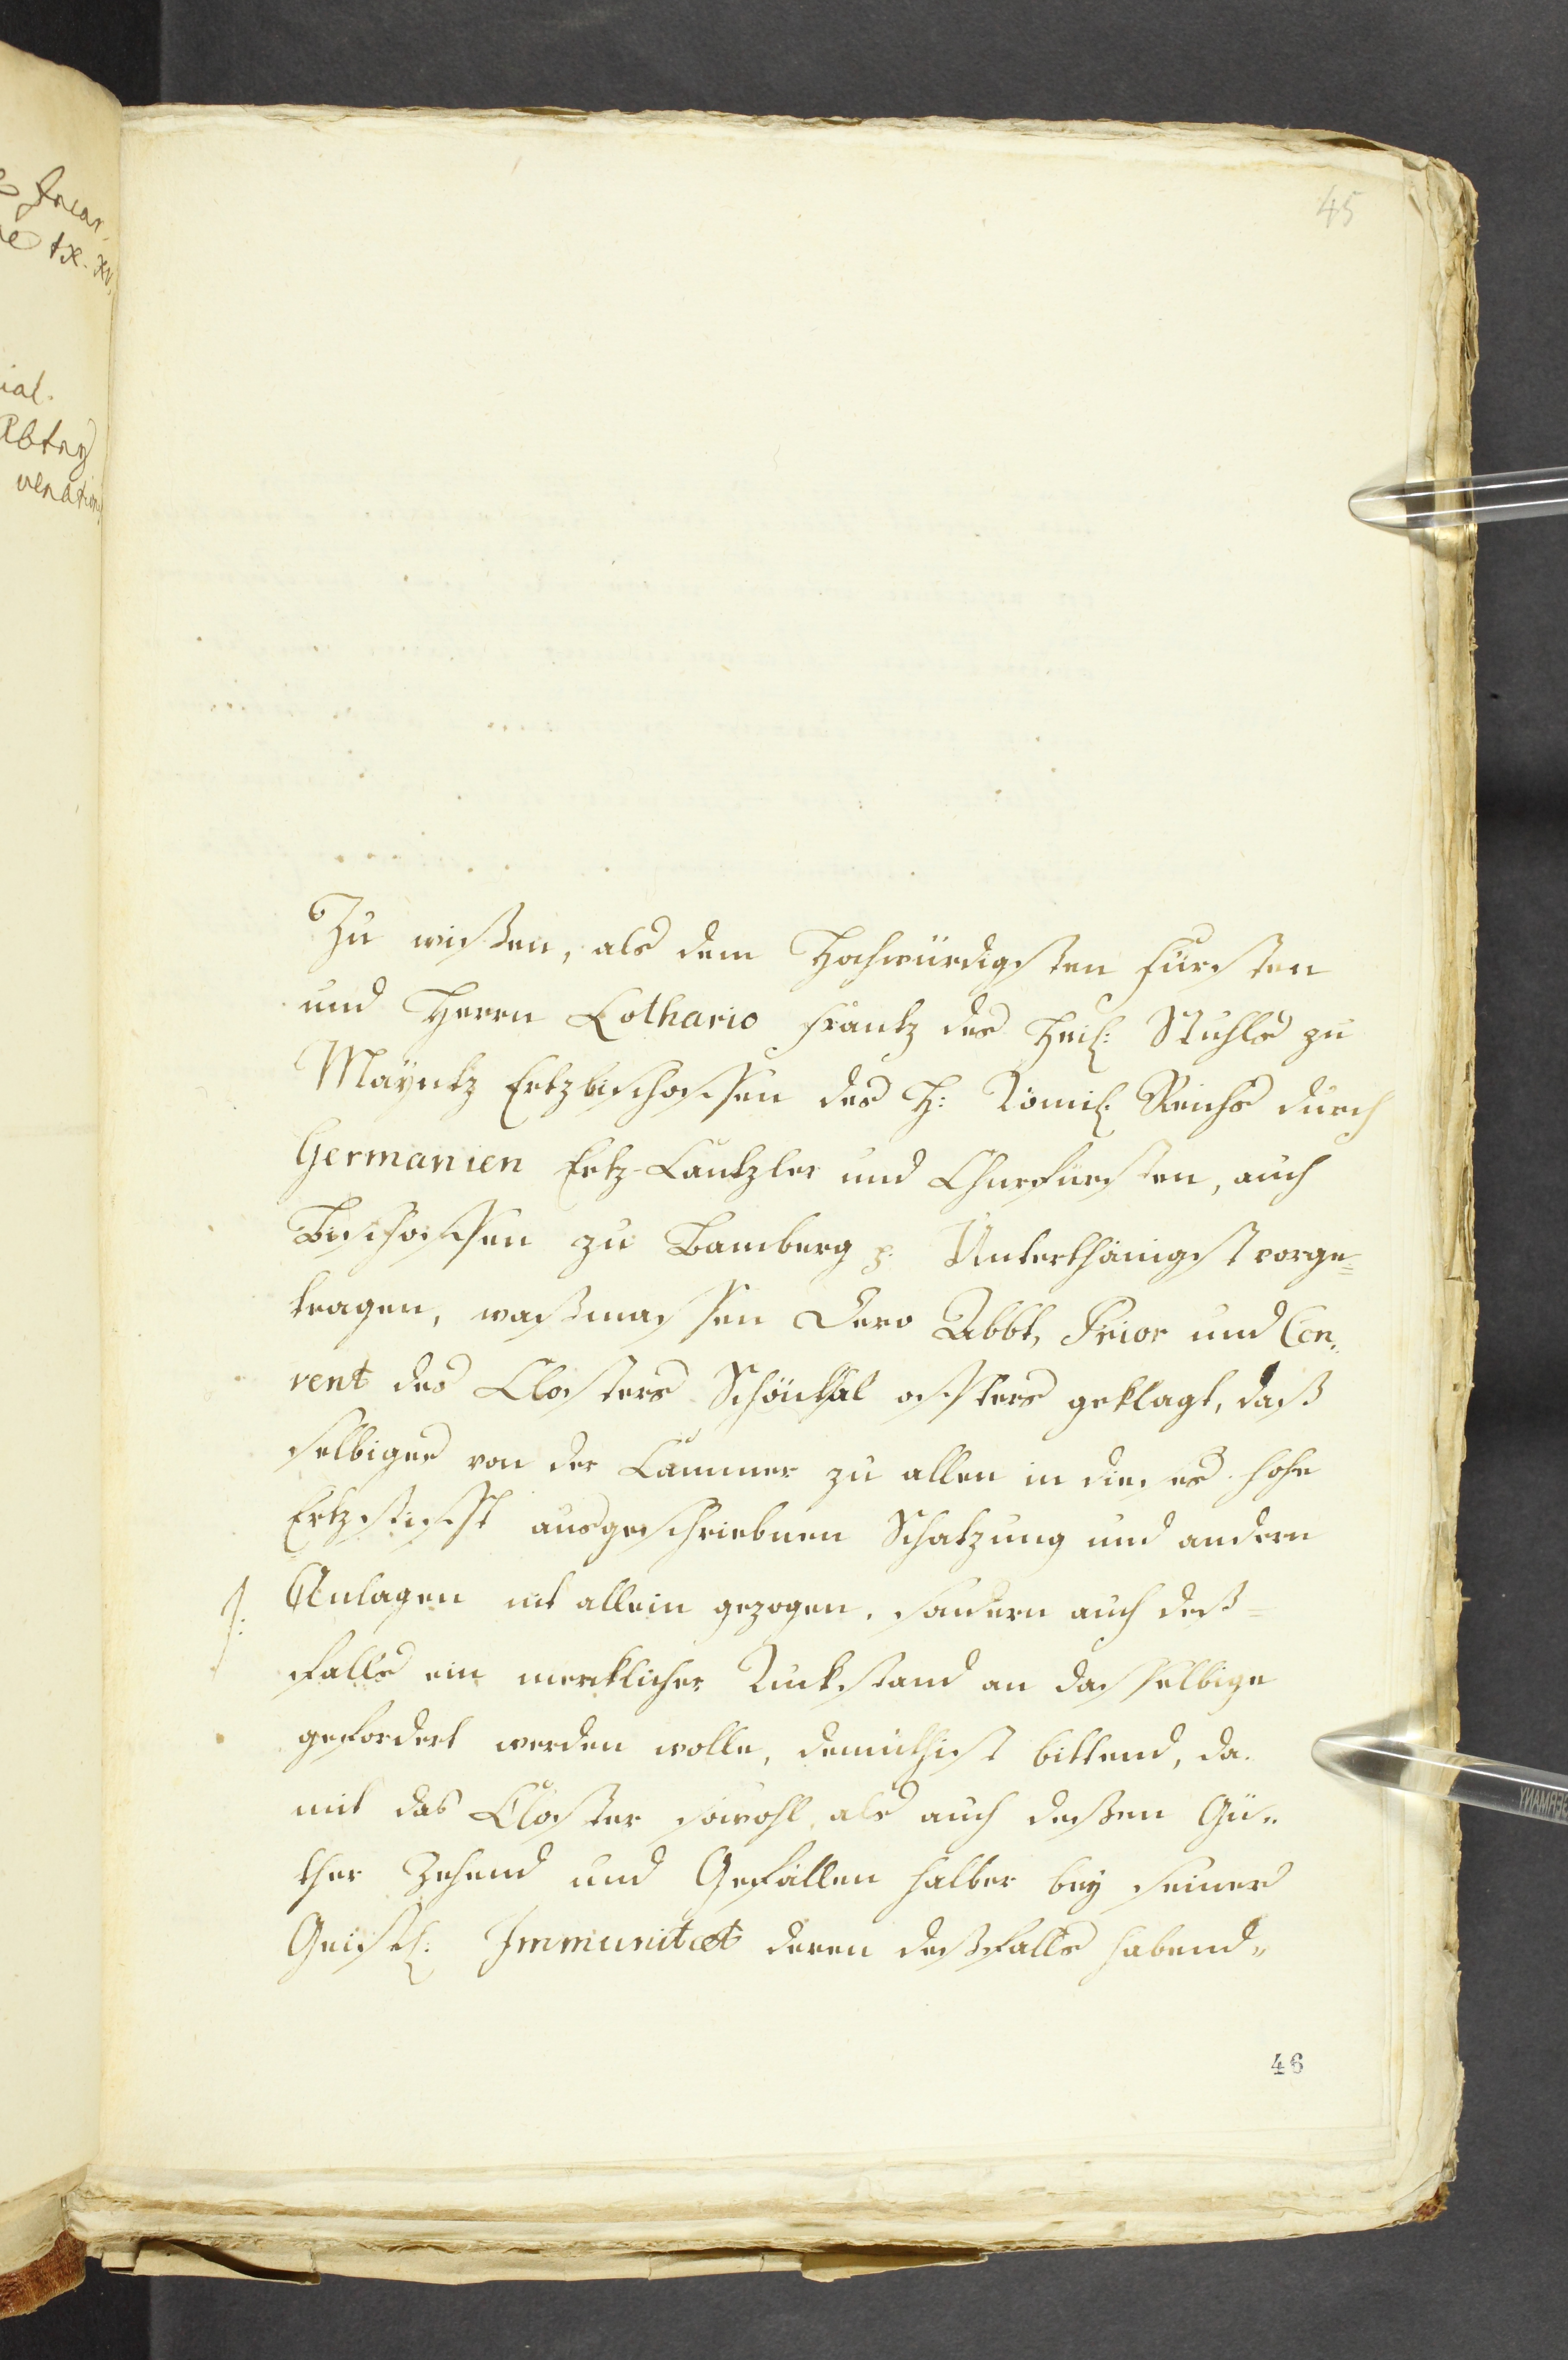 45
Zu wißen, als dem Hochwürdigsten Fürsten
und Herrn Lothario Frantz des Heil: Stuhls zu
Mayntz Ertzbischoffen des H: Römis: Reichs durch
Germanien Ertz-Cantzler und Churfürsten, auch
Bischoffen zu Bamberg p. Unterthänigst vorge=
tragen, waßmassen Dero Abbt, Prior und Con„
vent des Closters Schönthal öffters geklagt, daß
selbiges von der Cammer zu allen in dieses hohe
Ertzstifft ausgeschriebnen Schatzung und andern
Anlagen nit allein gezogen, sondern auch deß=
falls ein mercklicher Ruckstand an dasselbige
gefordert werden wolle, demüthigst bittend, da„
mit das Closter sowohl als auch deßen Gü„
ther Zehend und Gefällen halber bey seiner
Geistl: Immunitæt deren deßfalls habend„
46
ial.
Abtey